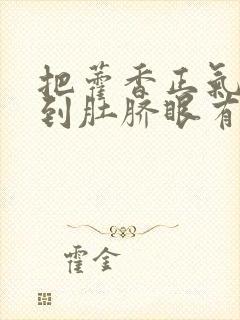 把藿香正氣
到肚脐眼有
霍金